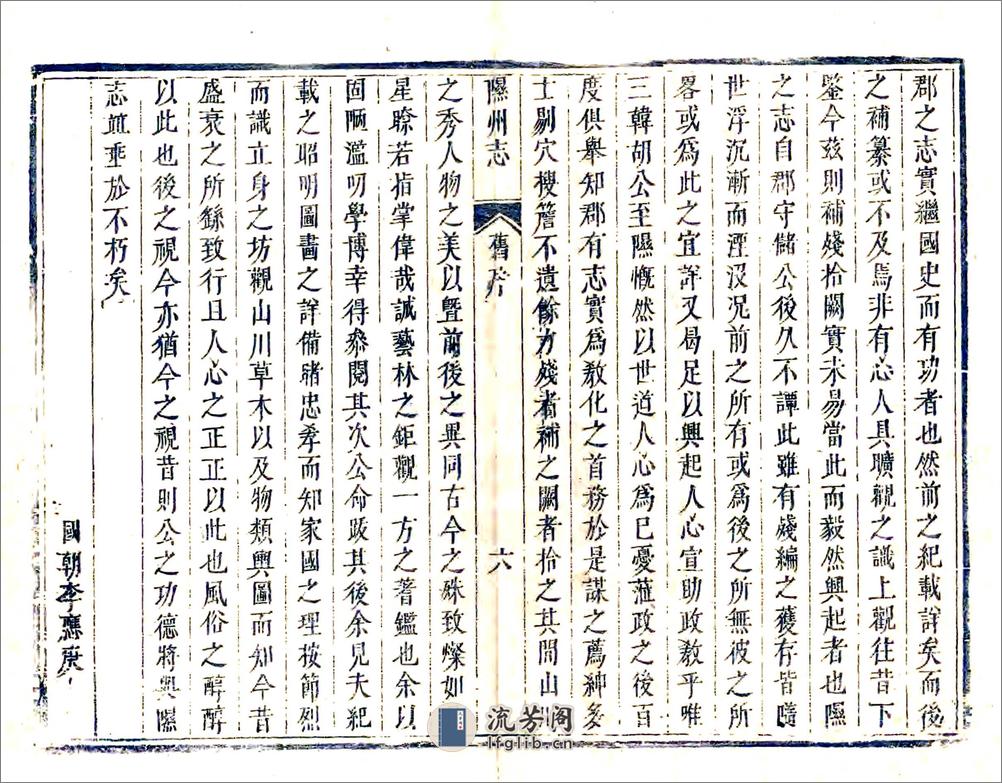 郡之志實繼國史而有功者也然前之紀載詳矣而後
之補纂或不及焉非有心人具曠觀之識上觀往昔下
鑒今兹則補殘拾闕實未易當此而毅然興起者也隰
之志自郡守儲公後久不譚此雖有殘編之獲存皆隨
世浮沉漸而湮沒况前之所有或爲後之所無彼之所
畧或爲此之宜詳又曷足以興起人心宣助政教乎唯
三韓胡公至隰慨然以世道人心爲已憂蒞政之後百
度俱舉知郡有志實爲教化之首務於是謀之薦紳多
士剔穴搜簷不遺餘力殘者補之闕者拾之其間山川
隰州志
舊序
六
之秀人物之美以曁前後之異同古今之殊致燦如列
星瞭若指掌偉哉誠藝林之鉅觀一方之蓍鑑也余以
固陋濫叨學博幸得叅閱其次公命䟦其後余見夫紀
載之昭明圖畵之詳備睹忠孝而知家國之理按節烈
而識立身之坊觀山川草木以及物類輿圖而知今昔
盛衰之所繇致行且人心之正正以此也風俗之醇醇
以此也後之視今亦猶今之視昔則公之功德將與隰
志並垂於不朽矣
國朝李應庚
流芳阁
lfglib.cn